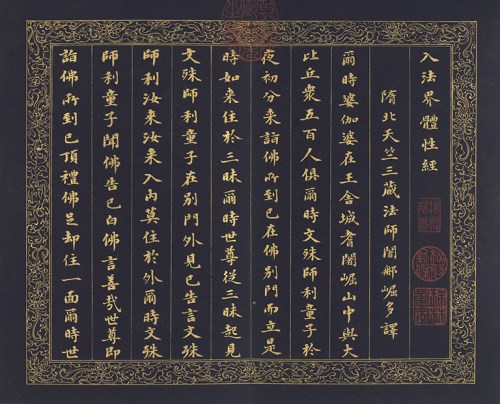 入法界體性經
隋北天竺三藏法師闍那崛多譯
爾時婆伽婆在王舍城耆闍崛山中與大
比丘眾五百人俱爾時文殊師利童子於
夜初分來詣佛所到已在佛別門而立是
時如來住於三昧爾時世尊從三昧起見
文殊師利童子在別門外見已告言文殊
師利汝來汝來入內莫住於外爾時文殊
師利童子聞佛告已白佛言善哉世尊即
詣佛所到已頂禮佛足却住一面爾時世